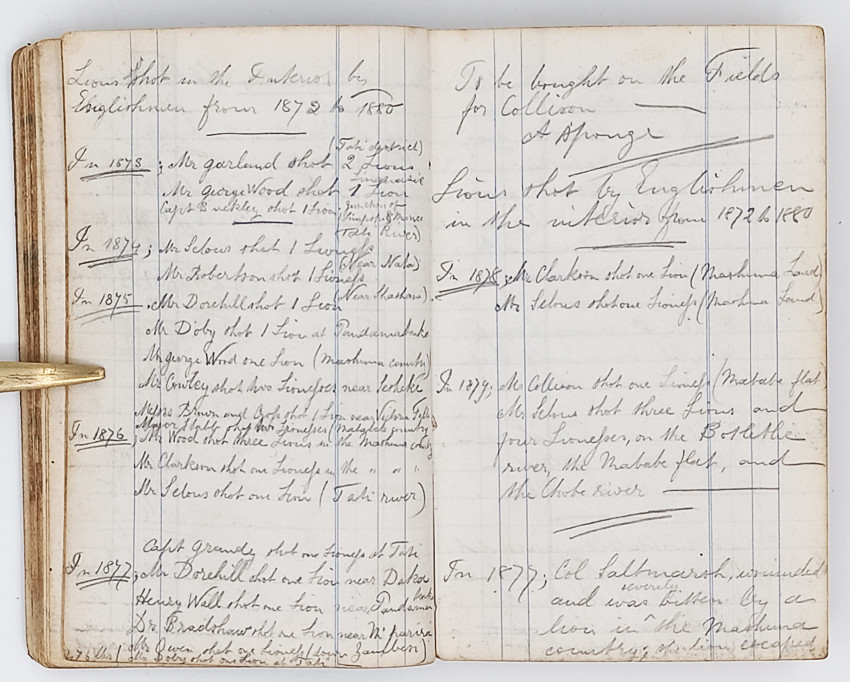 Lions shot in the Interior by
Englishmen from 1872 to 1880
In 1873; Mr Garland shot 2 Lions (Tati district)
Mr George Wood shot 1 Lion
Capt Buckley shot 1 Lion, junction of
Tati River)
In 1874; Mr Selous shot 1 Lioness
(Near Nata)
Mr Robertson shot 1 Lioness
(Near Shashani)
In 1875. Mr Dorehill shot 1 Lion
Mr Doby shot 1 Lion at Pandamatenka
Mr George Wood one Lion (Mashuna country)
Mr Cowley shot two Lionesses near Lesheke
Messrs Brown and Cross shot 1 Lion near Victoria Falls
Major Stabb shot two Lionesses (Matabele country)
In 1876; Mr Wood shot three Lions in the Mashuna country
Mr Clarkson shot one Lioness in the " " "
Mr Selous shot one Lion (Tati river)
Capt Grandy shot one Lioness at Tati
In 1877; Mr Dorehill shot one Lion near Daka
Henry Wall shot one Lion near Pandamatenka
Dr Bradshaw shot one Lion near Mparira
Mr Owen shot one Lioness (down Zambesi)
Mr Doby shot one Lion at Tati
To be bought on the Fields
for Collison
A Sponge
Lions shot by Englishmen
in the interior from 1872 to 1880
In 1878; Mr Clarkson shot one Lion (Mashuna Land)
Mr Selous shot one Lioness (Mashuna Land)
In 1879; Mr Collison shot one Lioness (Mababe flat)
Mr Selous shot three Lions and
four Lionesses, on the Botletlie
river, the Mababe flat, and
the Chobe river
In 1877; Col Saltmarsh, wounded
severely
and was bitten by a
lion in the Mashuna
country; the lion escaped